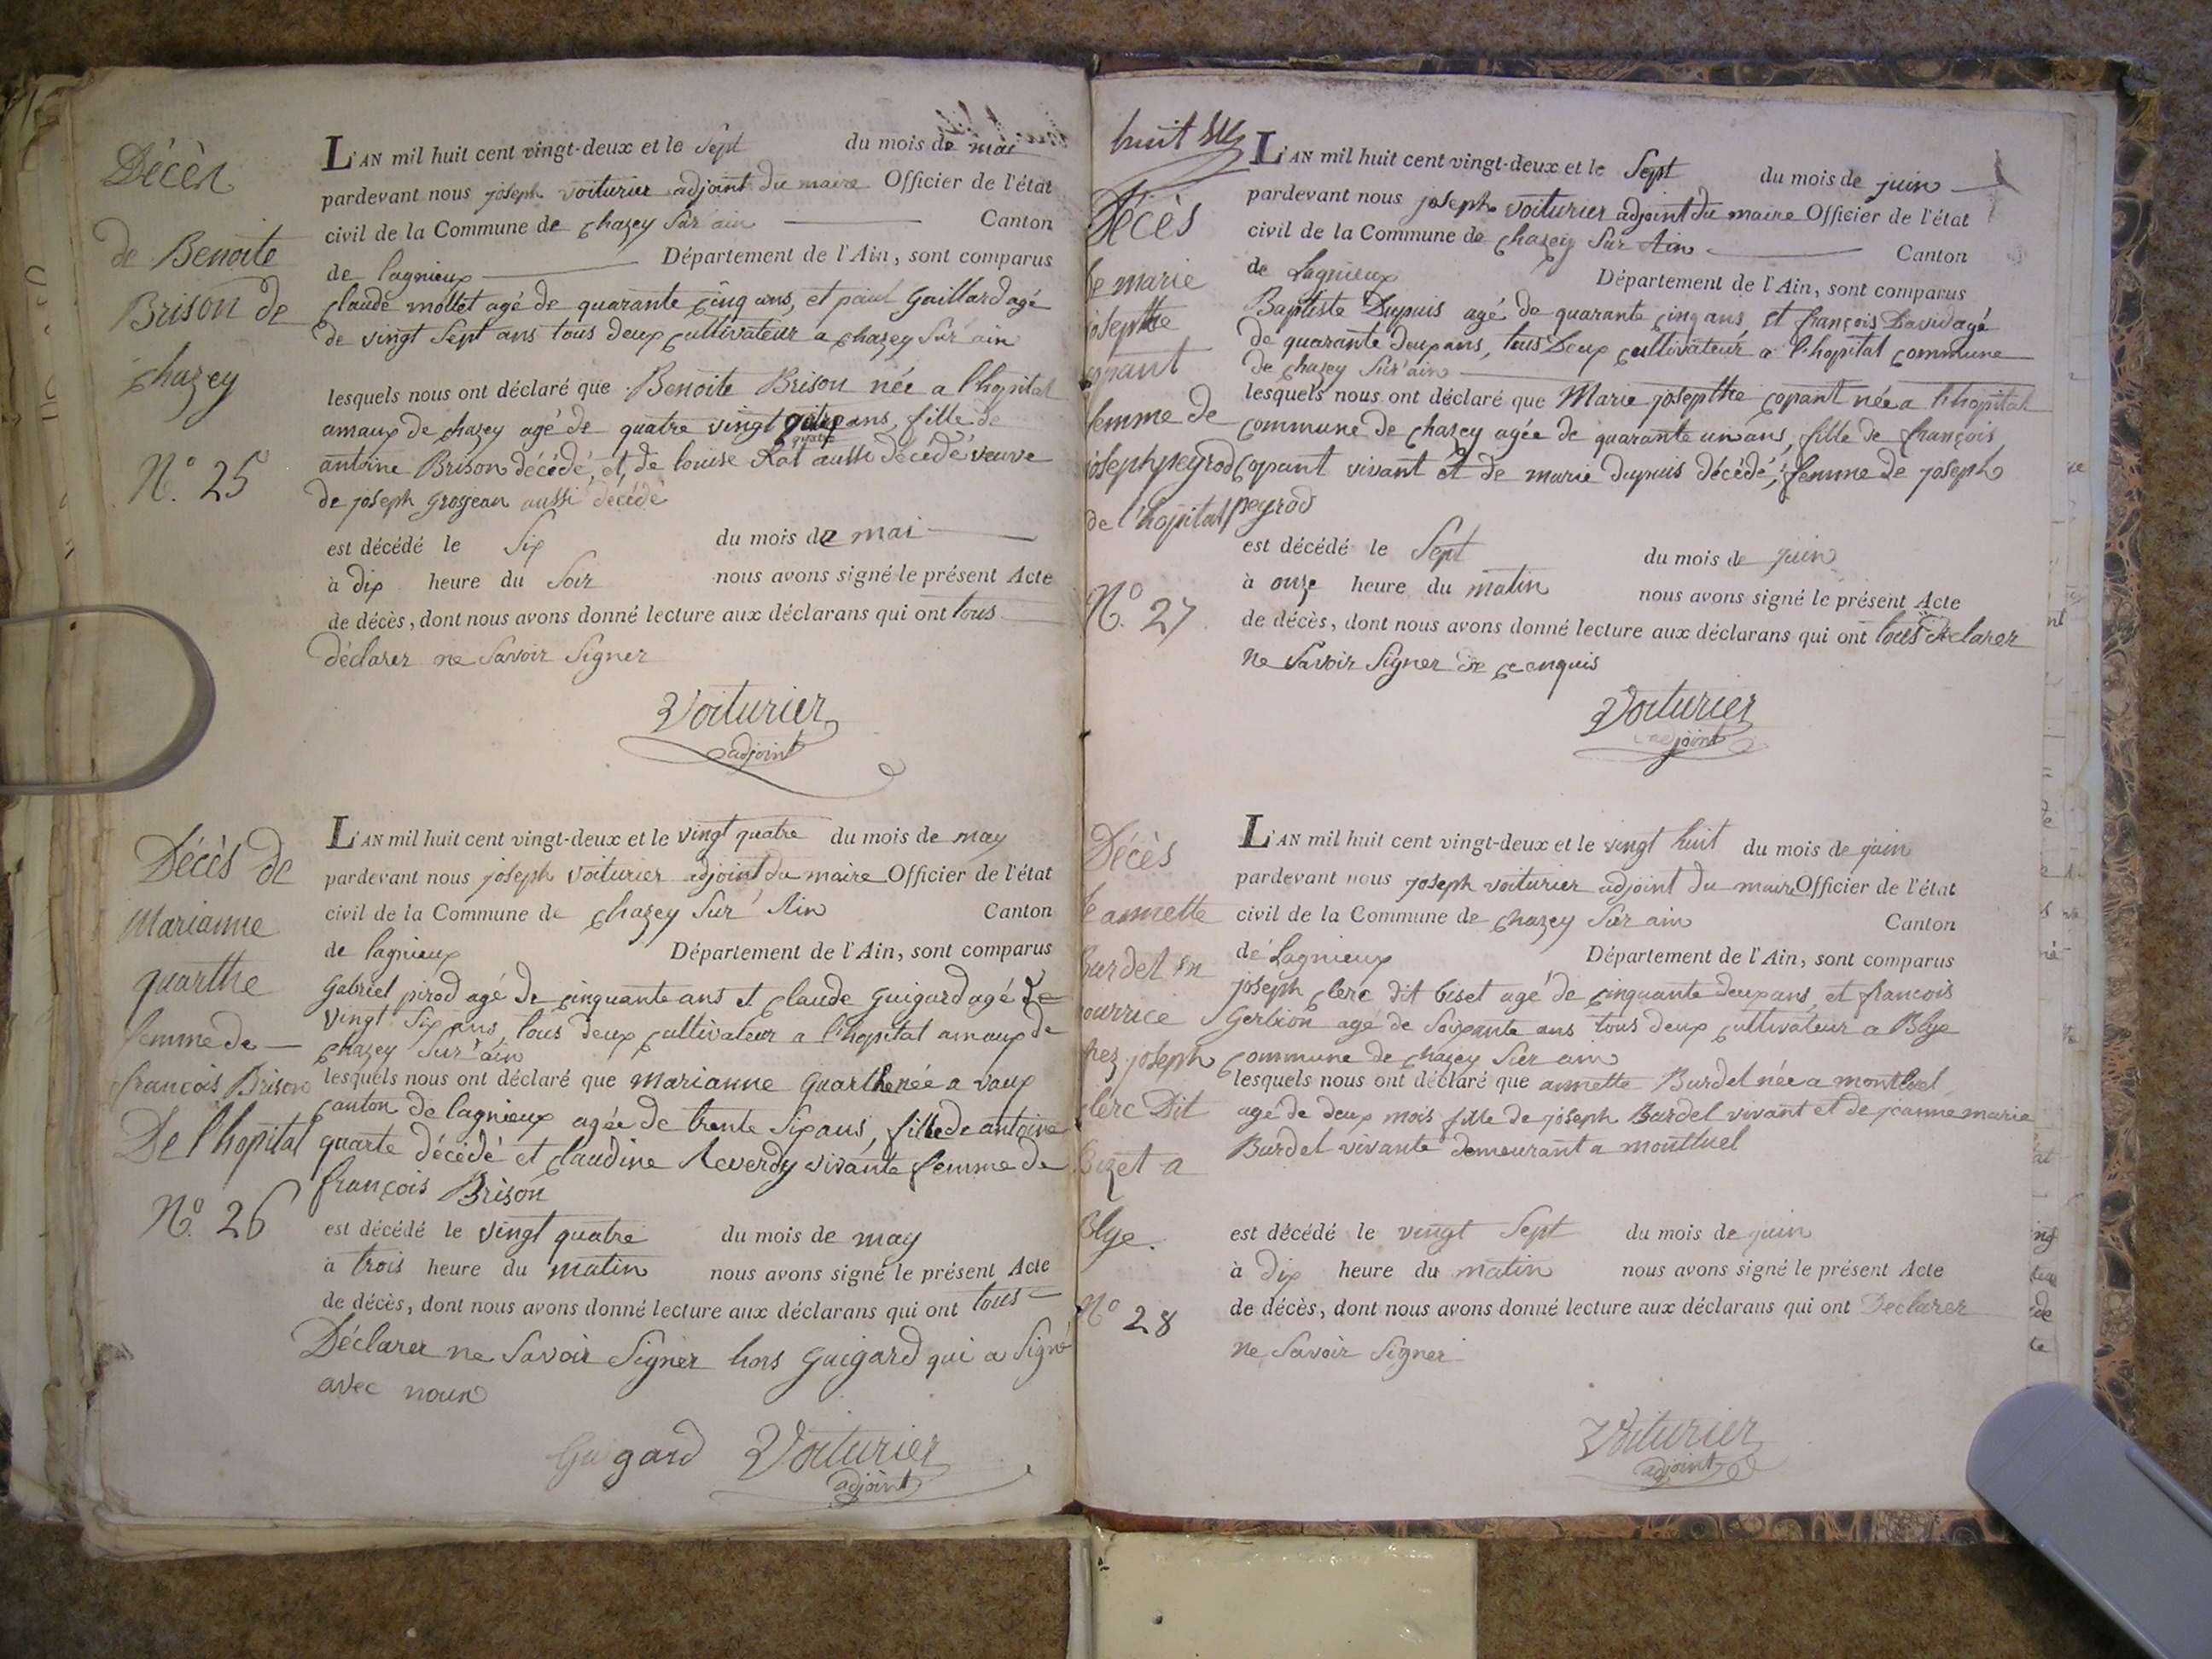 Décès
de Benoite
Brison de
chazey
N.º 25
L'AN mil huit cent vingt-deux et le Sept du mois de mai
pardevant nous joseph voiturier adjoint du maire Officier de l'état
civil de la Commune de chazey Sur ain Canton
de lagnieux Département de l'Ain, sont comparus
claude mollet agé de quarante cinq ans, et paul Gaillard agé
de vingt Sept ans tous deux cultivateur a chazey Sur ain
lesquels nous ont déclaré que Benoite Brison née a l'hopital
amaux de chazey agé de quatre vingt quatre ans, fille de
antoine Brison décédé, et, de louise Rat aussi décédé veuve
de joseph grosjean aussi décédé
est décédé le Six du mois de mai
à dix heure du Soir nous avons signé le présent Acte
de décès, dont nous avons donné lecture aux déclarans qui ont tous
déclarer ne Savoir Signer
Voiturier
adjoint
Décès de
Marianne
quarthe
femme de
françois Brison
De l'hopital
N.º 26
L'AN mil huit cent vingt-deux et le vingt quatre du mois de may
pardevant nous joseph voiturier adjoint du maire Officier de l'état
civil de la Commune de chazey Sur Ain Canton
de lagnieux Département de l'Ain, sont comparus
Gabriel pirod agé de cinquante ans et claude Guigard agé de
vingt Six ans, tous deux cultivateur a l'hopital amaux de
chazey Sur ain
lesquels nous ont déclaré que marianne Quarthe née a vaux
canton de lagnieux agée de trente Six ans, fille de antoine
quarte décédé et claudine Reverdy vivante femme de
françois Brison
est décédé le vingt quatre du mois de may
à trois heure du matin nous avons signé le présent Acte
de décès, dont nous avons donné lecture aux déclarans qui ont tous
Déclarer ne Savoir Signer hors Guigard qui a Signé
avec nous
Guigard Voiturier
adjoint
huit
Décès
de marie
josepthe
copant
femme de
joseph peyrod
de l'hopital
N.º 27
L'AN mil huit cent vingt-deux et le Sept du mois de juin
pardevant nous joseph voiturier adjoint du maire Officier de l'état
civil de la Commune de chazey Sur Ain Canton
de Lagnieux Département de l'Ain, sont comparus
Baptiste Dupuis agé de quarante cinq ans, et françois David agé
de quarante deux ans, tous Deux cultivateur a l'hopital commune
de chazey Sur ain
lesquels nous ont déclaré que Marie josepthe copant née a l'hopital
commune de chazey agée de quarante un ans, fille de françois
Copant vivant et de marie dupuis décédé, femme de joseph
peyrod
est décédé le Sept du mois de juin
à onze heure du matin nous avons signé le présent Acte
de décès, dont nous avons donné lecture aux déclarans qui ont tous déclarer
ne Savoir Signer de ce enquis
Voiturier
adjoint
Décès
de annette
burdel en
nourrice
chez joseph
clerc Dit
bizet a
Blye.
Nº 28
L'AN mil huit cent vingt-deux et le vingt huit du mois de juin
pardevant nous joseph voiturier adjoint du maire Officier de l'état
civil de la Commune de chazey Sur ain Canton
de Lagnieux Département de l'Ain, sont comparus
joseph clerc dit biset agé de cinquante deux ans, et francois
Gerbion agé de Soixante ans tous deux cultivateur a Blye
commune de chazey Sur ain
lesquels nous ont déclaré que annette Burdel née a montluel
agé de deux mois fille de joseph Burdel vivant et de jeanne marie
Burdel vivante demeurant a montluel
est décédé le vingt Sept du mois de juin
à dix heure du matin nous avons signé le présent Acte
de décès, dont nous avons donné lecture aux déclarans qui ont Declarer
ne Savoir Signer
Voiturier
adjoint